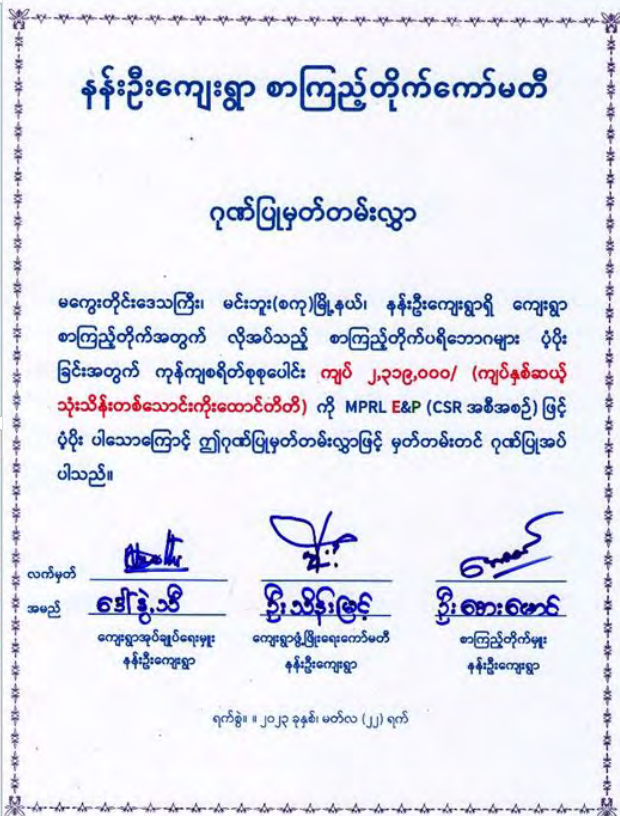 နန်းဦးကျေးရွာ စာကြည့်တိုက်ကော်မတီ
ဂုဏ်ပြုမှတ်တမ်းလွှာ
မကွေးတိုင်းဒေသကြီး၊ မင်းဘူး(စကု)မြို့နယ်၊ နန်းဦးကျေးရွာရှိ ကျေးရွာ
စာကြည့်တိုက်အတွက် လိုအပ်သည့် စာကြည့်တိုက်ပရိဘောဂများ ပံ့ပိုး
ခြင်းအတွက် ကုန်ကျစရိတ်စုစုပေါင်း ကျပ် ၂,၃၁၉,၀၀၀/ (ကျပ်နှစ်ဆယ့်
သုံးသိန်းတစ်သောင်းကိုးထောင်တိတိ) ကို MPRL E&P (CSR အစီအစဉ်) ဖြင့်
ပံ့ပိုး ပါသောကြောင့် ဤဂုဏ်ပြုမှတ်တမ်းလွှာဖြင့် မှတ်တမ်းတင် ဂုဏ်ပြုအပ်
ပါသည်။
လက်မှတ်
အမည် ဒေါ်နွဲ့သီ ဦးသိန်းမြင့် ဦးအေးမောင်
ကျေးရွာအုပ်ချုပ်ရေးမှူး ကျေးရွာဖွံ့ဖြိုးရေးကော်မတီ စာကြည့်တိုက်မှူး
နန်းဦးကျေးရွာ နန်းဦးကျေးရွာ နန်းဦးကျေးရွာ
ရက်စွဲ။ ။ ၂၀၂၃ ခုနှစ်၊ မတ်လ (၂၂) ရက်